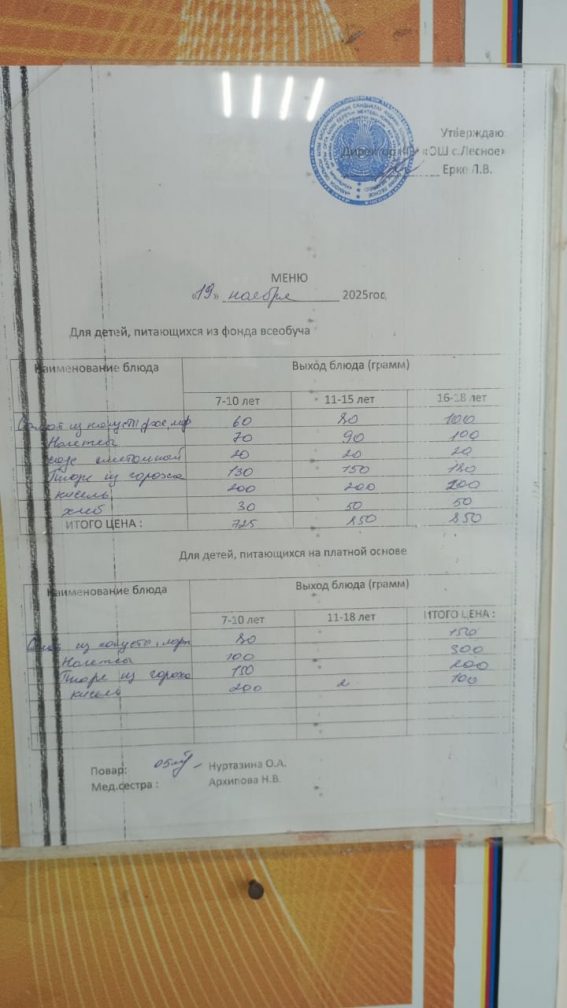 Утверждаю:
Директор КГУ «ОШ с.Лесное»
Ерке Л.В.
МЕНЮ
«19» ноября 2025год
Для детей, питающихся из фонда всеобуча
Наименование блюда Выход блюда (грамм)
7-10 лет 11-15 лет 16-18 лет
Салат из капусты 60 80 100
Котлеты 70 90 100
соус сметанный 20 20 20
Пюре из гороха 130 150 180
кисель 200 200 200
хлеб 30 50 50
ИТОГО ЦЕНА : 725 850 850
Для детей, питающихся на платной основе
Наименование блюда Выход блюда (грамм)
7-10 лет 11-18 лет ИТОГО ЦЕНА :
Салат из капусты, морк 80 150
Котлеты 100 300
Пюре из гороха 150 200
кисель 200 100
Повар: Нуртазина О.А.
Мед.сестра : Архипова Н.В.